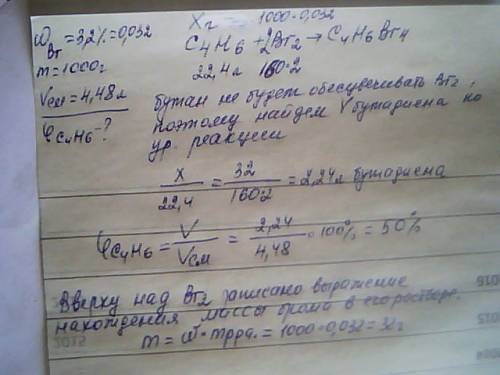 ω Br = 3,2% = 0,032
m = 1000 г
Vсм = 4,48 л
φ C4H6 - ?
X г 1000·0,032
C4H6 + 2Br2 → C4H6Br4
22,4 л 160·2
бутан не будет обесцвечивать Br2,
поэтому найдем V бутадиена по
ур. реакции
x/22,4 = 32/160·2 = 2,24 л бутадиена
φ C4H6 = V/Vсм = 2,24/4,48 · 100% = 50%
Вверху над Br2 записано выражение
нахождения массы брома в его растворе.
m = ω · mрра. = 1000 · 0,032 = 32 г